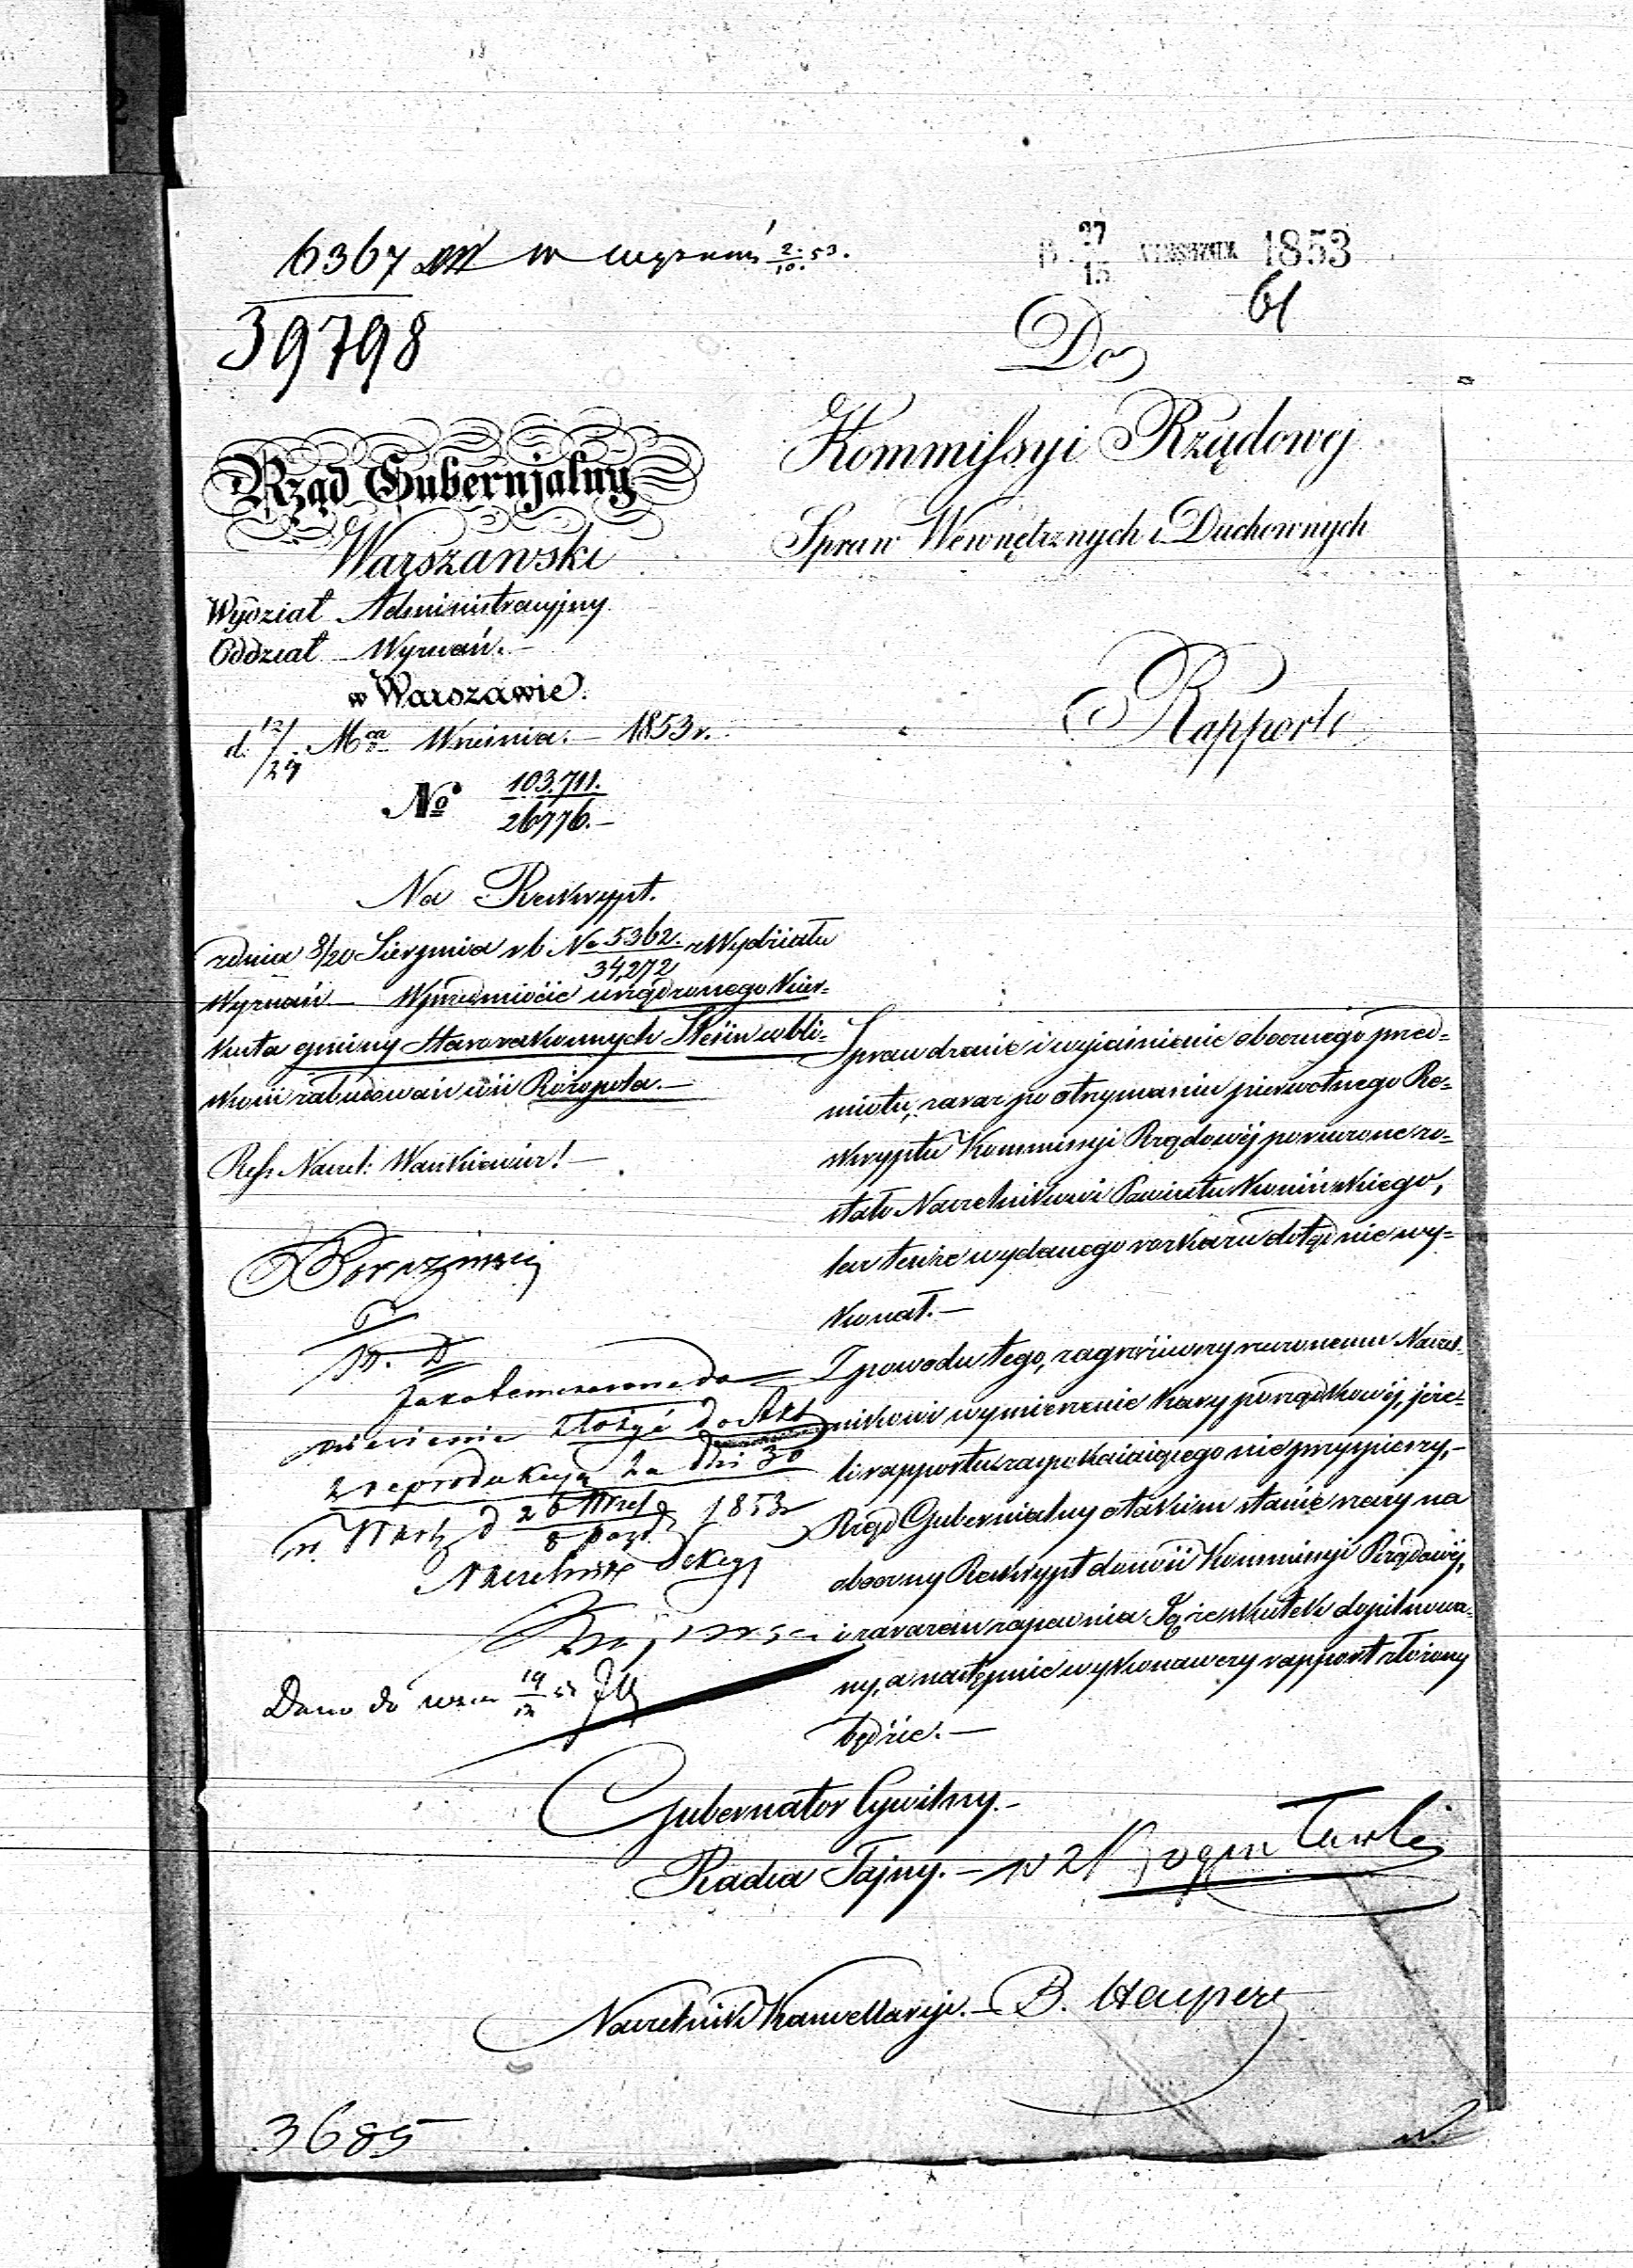 6367 w wyznań 2/10 53.
39798
27/15 1853
61
Do
Kommissyi Rządowej
Spraw Wewnętrznych i Duchownych
Rapport
Rząd Gubernjalny
Warszawski
Wydział Administracyjny
Oddział Wyznań.
w Warszawie.
d. 12/24 Mca Września. 1853 r.
No 103.711./26776.
Na Reskrypt.
z dnia 8/20 Sierpnia r b No 5362./34,272 z Wydziału
Wyznań Wprzedmiocie urządzonego Kier-
kuta gminy Starozakonnych Slesin wbli-
skości zabudowań wsi Różopola.
Refs. Naczel: Wańkiewicz!
Sprawdzenie i wyjaśnienie obocznego przed-
miotu, zaraz po otrzymaniu pierwotnego Re-
skryptu Kommissyi Rządowéj poruczone zo-
stało Naczelnikowi Powiatu Konińskiego,
lecz tenże wydanego rozkazu dotąd nie wy-
konał.
Z powodu tego, zagroziwszy rzeczonemu Naczel-
nikowi wymierzenie kary porządkowéj, jeże-
li rapportu zaspakaiaiącego nie przyspieszy,
Rząd Gubernialny o takim stanie rzeczy na
oboczny Reskrypt donosi Kommissyi Rządowéj,
i zarazem zapewnia Ją że skutek dopilnowa-
ny, a następnie wykonawczy rapport złożony
będzie.
złożyć do Akt
z reprodukcyą za dni 30
d 26 Wrześ/8 Paźd 1853
Naczelnik Sekcyi
Dano do 19/12 53
Gubernator Cywilny.
Radca Tajny.
Naczelnik Kancellaryi.
3685